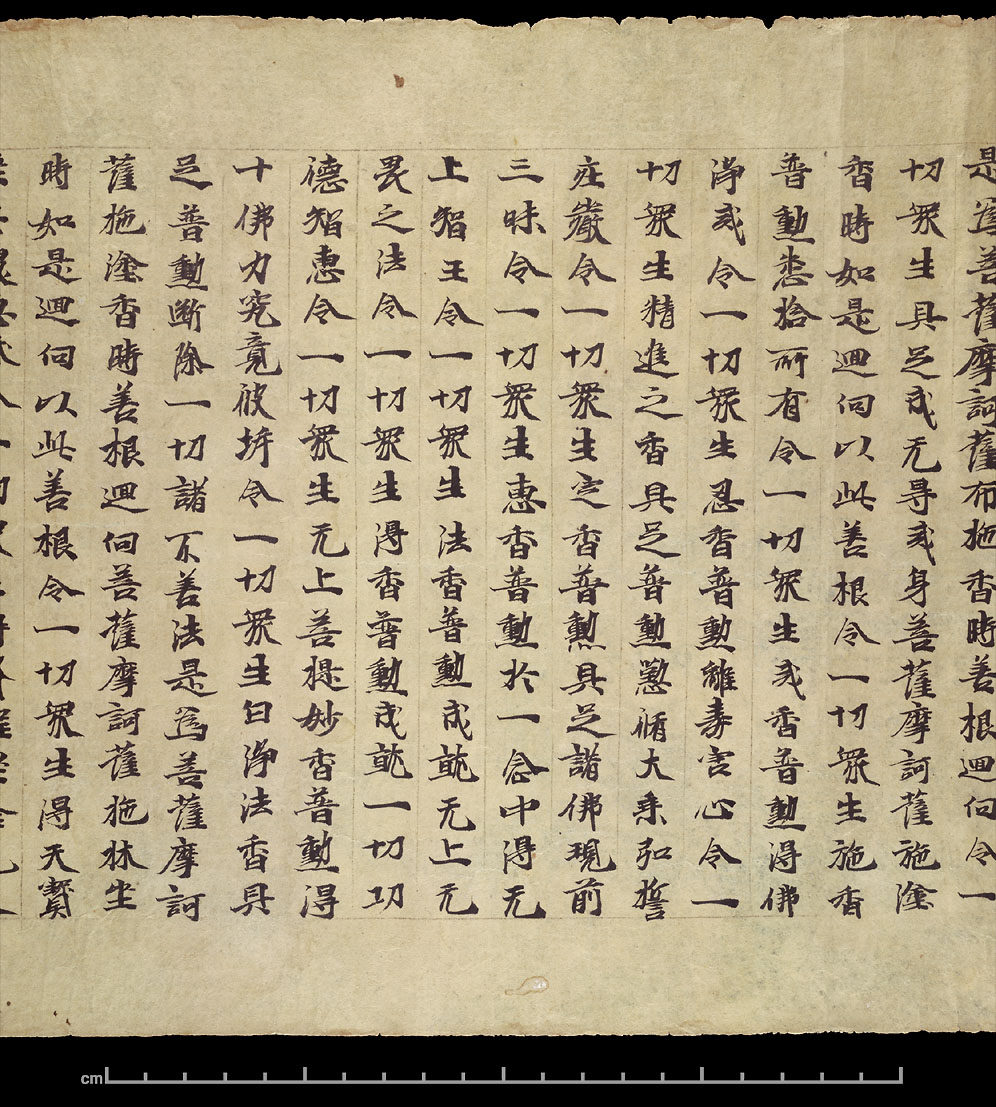 是為菩薩摩訶薩布施香時善根迴向令一
切衆生具足戒无㝵戒身菩薩摩訶薩施塗
香時如是迴向以此善根令一切衆生施香
普勳悉捨所有令一切衆生戒香普勳得佛
淨戒令一切衆生忍香普勳離毒害心令一
切衆生精進之香具足普勳懃脩大乘弘誓
庄嚴令一切衆生定香普勳具足諸佛現前
三昧令一切衆生惠香普勳於一念中得无
上智王令一切衆生法香普勳成就无上无
畏之法令一切衆生得香普勳成就一切功
德智惠令一切衆生无上菩提妙香普勳得
十佛力究竟彼垿令一切衆生白淨法香具
足普勳断除一切諸不善法是為菩薩摩訶
薩施塗香時善根迴向菩薩摩訶薩施牀坐
時如是迴向以此善根令一切衆生得天寶